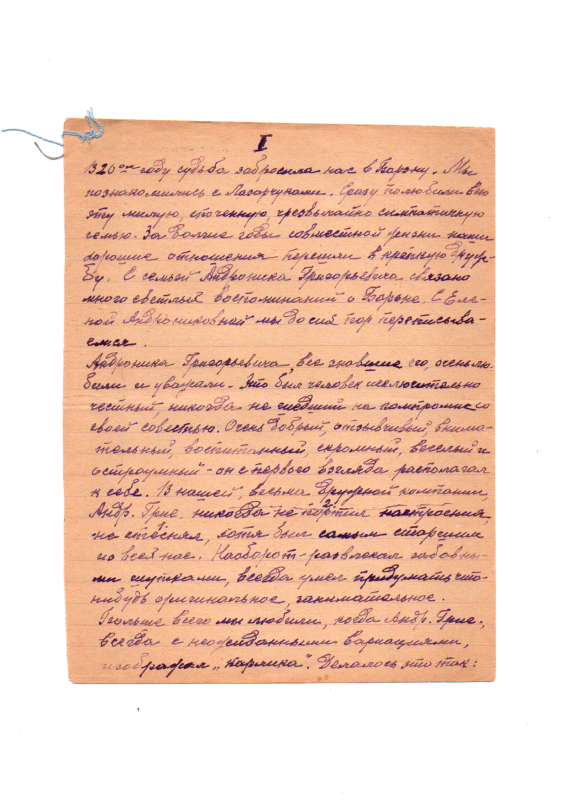 I
В 20ом году судьба забросила нас в Борзну. Мы
познакомились с Лазарчуками. Сразу полюбили всю
эту милую, сточенную, чрезвычайно симпатичную
семью. За долгие годы совместной жизни наши
хорошие отношения перешли в крепкую друж-
бу. С семьей Андроника Григорьевича связано
много светлых воспоминаний о Борзне. С Еле-
ной Андрониковной мы до сих пор переписыва-
емся.
Андроника Григорьевича, все знавшие его, очень лю-
били и уважали. Это был человек исключительно
честный, никогда не шедший на компромис со
своей совестью. Очень добрый, отзывчивый, внима-
тельный, воспитанный, скромный, веселый и
остроумный - он с первого взгляда располагал
к себе. В нашей, весьма дружной компании,
Андр. Григ. никогда не портил настроения,
не стеснял, хотя был самым старшим
из всех нас. Наоборот - развлекал забавны-
ми шутками, всегда умел придумать что-
нибудь оригинальное, занимательное.
Больше всего мы любили, когда Андр. Григ.,
всегда с неожиданными вариациями,
изображал „карлика". Делалось это так: